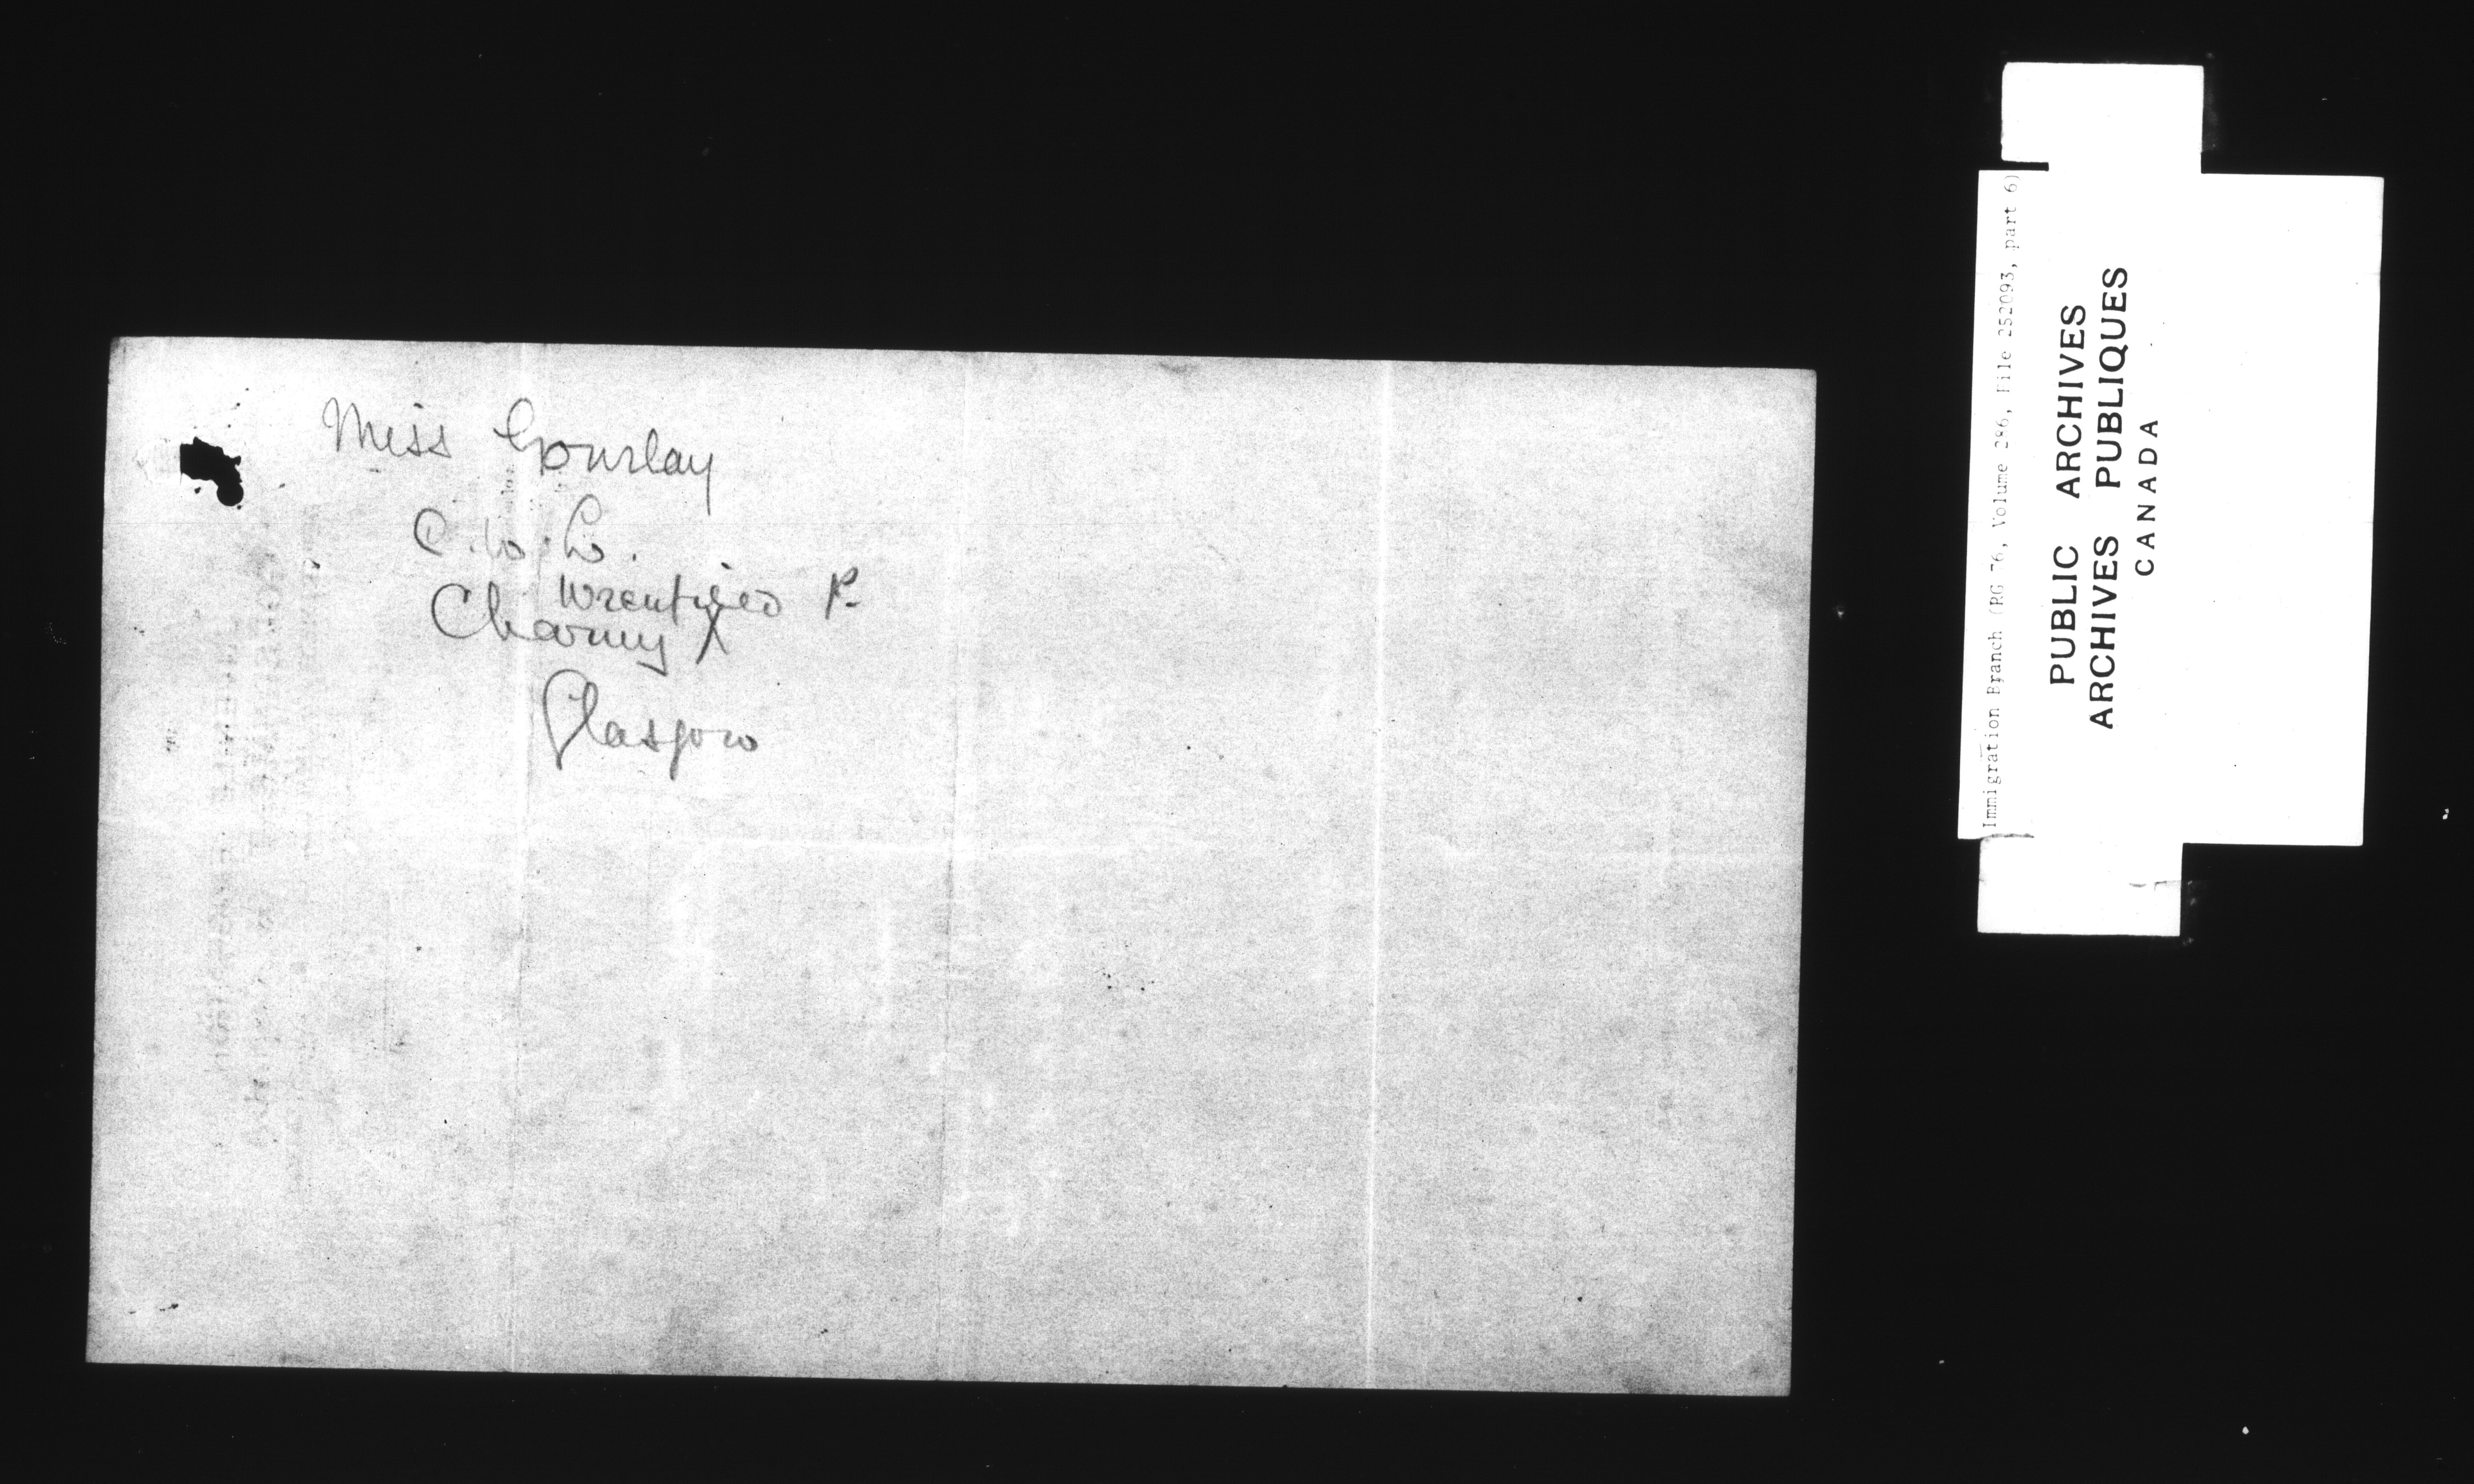 Miss Gourlay
C.W.L.
Charing X
Glasgow
Immigration Branch (RG 76, Volume 286, File 252093, part 6)
PUBLIC ARCHIVES
ARCHIVES PUBLIQUES
CANADA